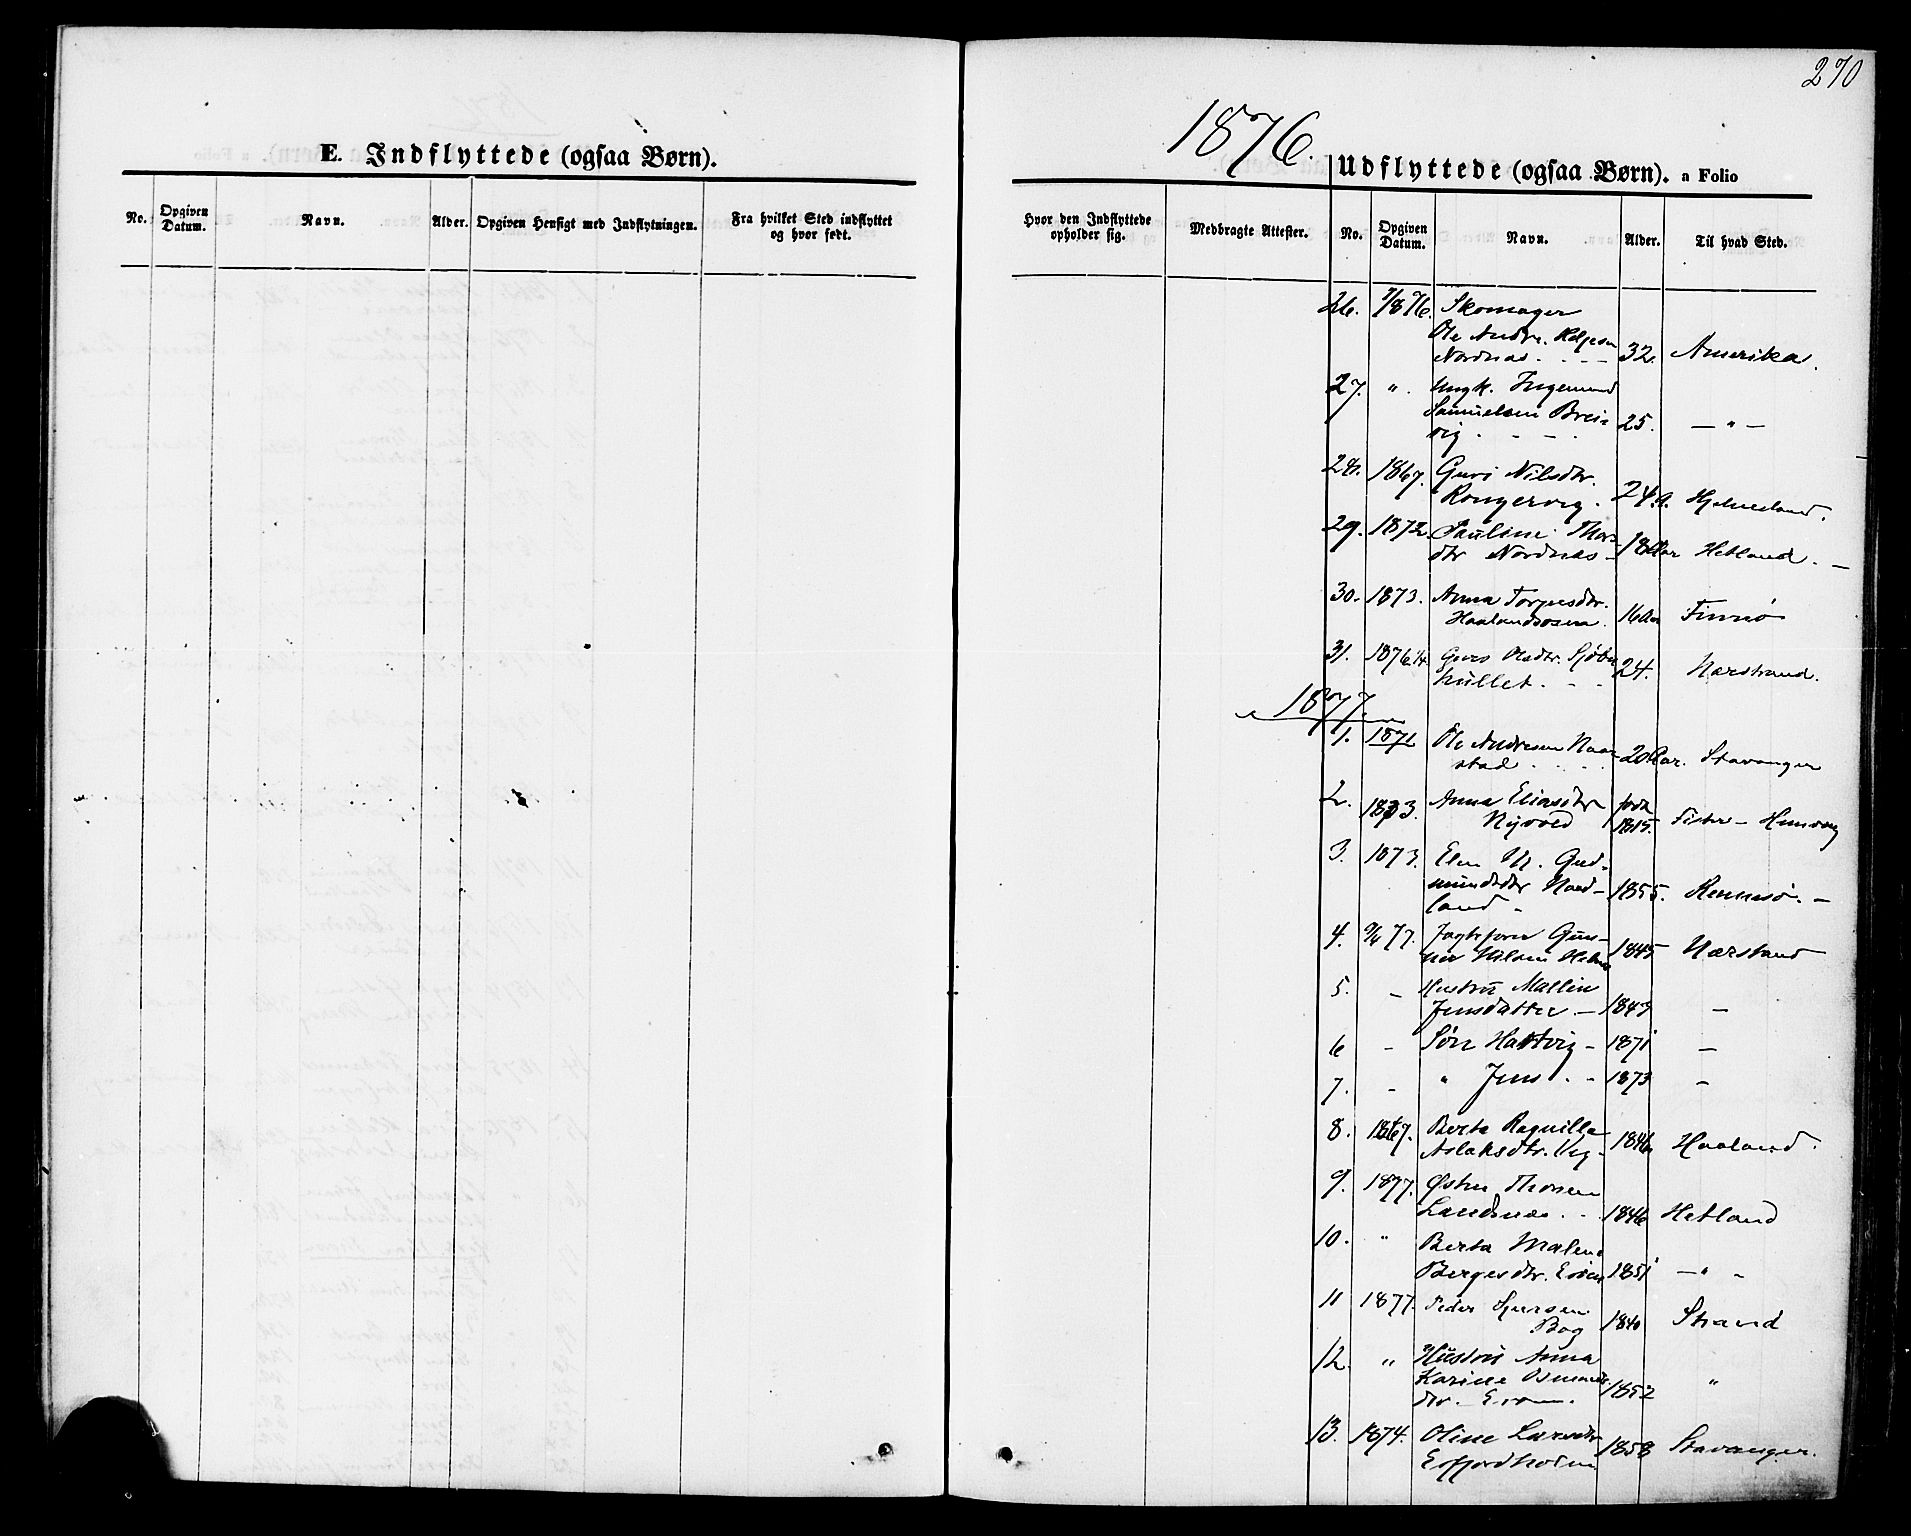 270
E. Indflyttede (ogsaa Børn).
No. Opgiven Datum. Navn. Alder. Opgiven Hensigt med Indflytningen. Fra hvilket Sted indflyttet og hvor født.
1876.
Udflyttede (ogsaa Børn). a Folio
Hvor den Indflyttede opholder sig. Medbragte Attester. No. Opgiven Datum. Navn. Alder. Til hvad Sted.
26. 7/8 76. Skomager
Ole Andr.
Nordnes . - - 32. Amerika.
27. " Ungk. Ingemund
Samuelsen Brei-
vig . - - . 25. — " —
28. 1867. Guri Nilsdtr.
24 Hjelmeland.
29. 1872. Pauline Thors-
dtr Nordnes - 18 Aar Hetland. -
30. 1873. Anna Torgersdtr.
Haalandsosen. 16 Aar Finnø
31. 1876 Guro Olsdtr.
24. Nærstrand.
1877.
1. 1871 Ole Andresen
stad . . . . 20 Aar. Stavanger
2. 1873. Anna Eliasdtr
født
1815. Fister -
3. 1873. Elen Gud-
mundsdtr
land - 1855. Rennesø. -
4. 77. Gun-
nar Nilsen 1845 Nærstrand
5. - Hustru Mallin
Jensdatter - 1843 -
6 - Søn Hartvig - 1871 -
7. - " Jens . - 1873 -
8. 1867. Berta Ragnilla
Aslaksdtr. Vig - 1846 Haaland.
9. 1877. Østen Thorsen
Landsnes . . 1846 Hetland
10. " Berta Malene
Bergesdtr. 1851 — " -
11 1877. Peder
Bog 1840 Strand
12. " Hustru Anna
Karine Osmunds-
dtr. 1852 "
13. 1874. Oline Larsdtr
Erfjordholm 1858 Stavanger.